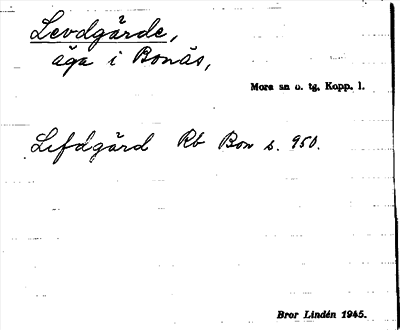 Levdgärde,
äga i Bonäs,
Mora sn o. tg, Kopp. l.
Lifdgärd Rb Bon s. 950.
Bror Lindén 1945.